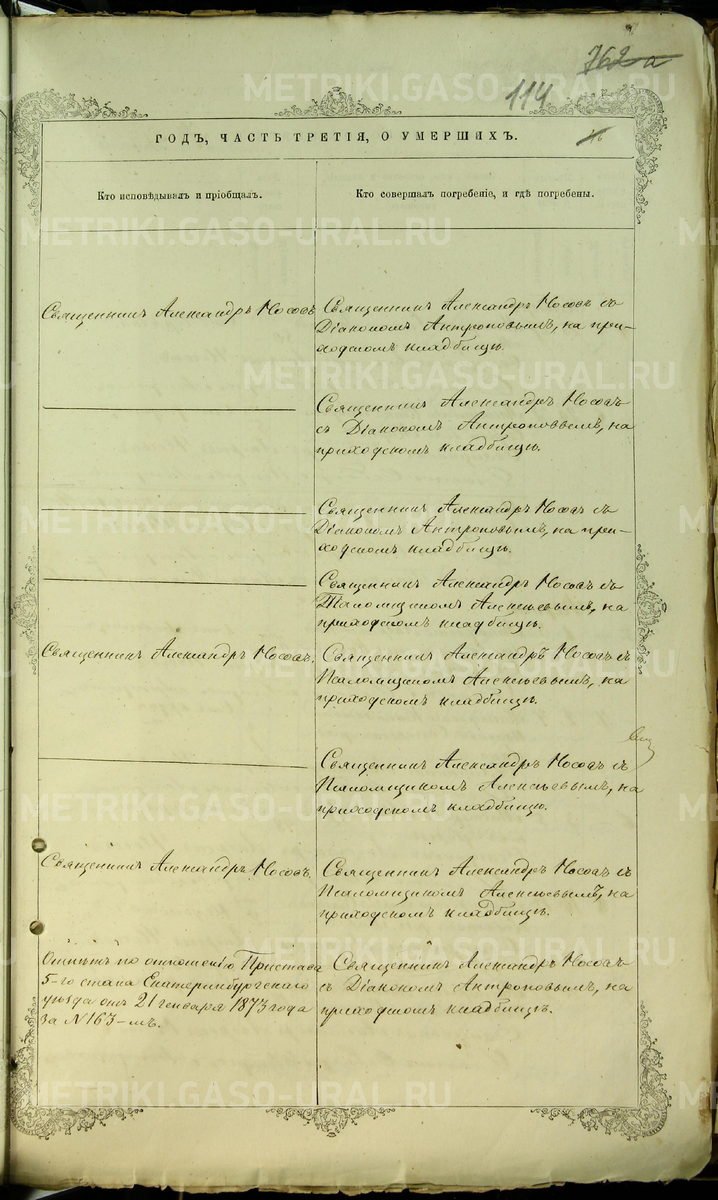 762 а
114
ГОДЪ, ЧАСТЬ ТРЕТІЯ, О УМЕРШИХЪ.
Кто исповѣдывалъ и пріобщалъ.
Кто совершалъ погребеніе, и гдѣ погребены.
Священникъ Александръ Носовъ
Священникъ Александръ Носовъ съ
Діакономъ Антроповымъ, на при-
ходскомъ кладбищѣ.
Священникъ Александръ Носовъ
съ Діакономъ Антроповымъ, на
приходскомъ кладбищѣ.
Священникъ Александръ Носовъ съ
Діакономъ Антроповымъ, на при-
ходскомъ кладбищѣ.
Священникъ Александръ Носовъ съ
Псаломщикомъ Алексѣевымъ, на
приходскомъ кладбищѣ.
Священникъ Александръ Носовъ.
Священникъ Александръ Носовъ съ
Псаломщикомъ Алексѣевымъ, на
приходскомъ кладбищѣ.
Священникъ Александръ Носовъ съ
Псаломщикомъ Алексѣевымъ, на
приходскомъ кладбищѣ.
Священникъ Александръ Носовъ.
Священникъ Александръ Носовъ съ
Псаломщикомъ Алексѣевымъ, на
приходскомъ кладбищѣ.
Отпѣтъ по отношенію Пристава
5-го стана Екатеринбургскаго
уѣзда отъ 21 генваря 1873 года
за N 163-мъ.
Священникъ Александръ Носовъ
съ Діакономъ Антроповымъ, на
приходскомъ кладбищѣ.
METRIKI.GASO-URAL.RU